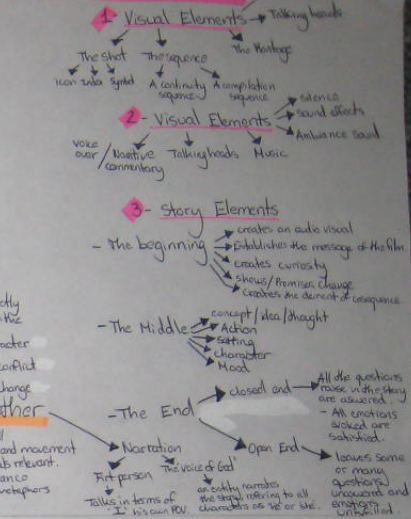 1 Visual Elements → Talking heads
The Shot The Sequence The Montage
Icon Index Symbol
A continuity sequency A compilation sequence
2 - Visual Elements
silence
Sound effects
Ambiance Sound
voice over / Narrative commentary
Talking heads Music
3 - Story Elements
- The beginning
creates an audio visual
Establishes the message of the film
creates curiosity
shows/Promises change
creates the element of consequence
- The Middle
concept/idea/thought
Action
Setting
character
Mood
- The End
closed end
All the questions
raise in the story
are answered.
- All emotions
evoked are
satisfied.
Open End
leaves some
or many
questions
unanswered and
emotions
unfulfilled.
Narration
First person
Talks in terms of
"I" his own POV.
'The voice of God'
an entity narrates
the story, refering to all
characters as 'he' or 'she'.
the
conflict
change
ther
and movement
relevant.
metaphors